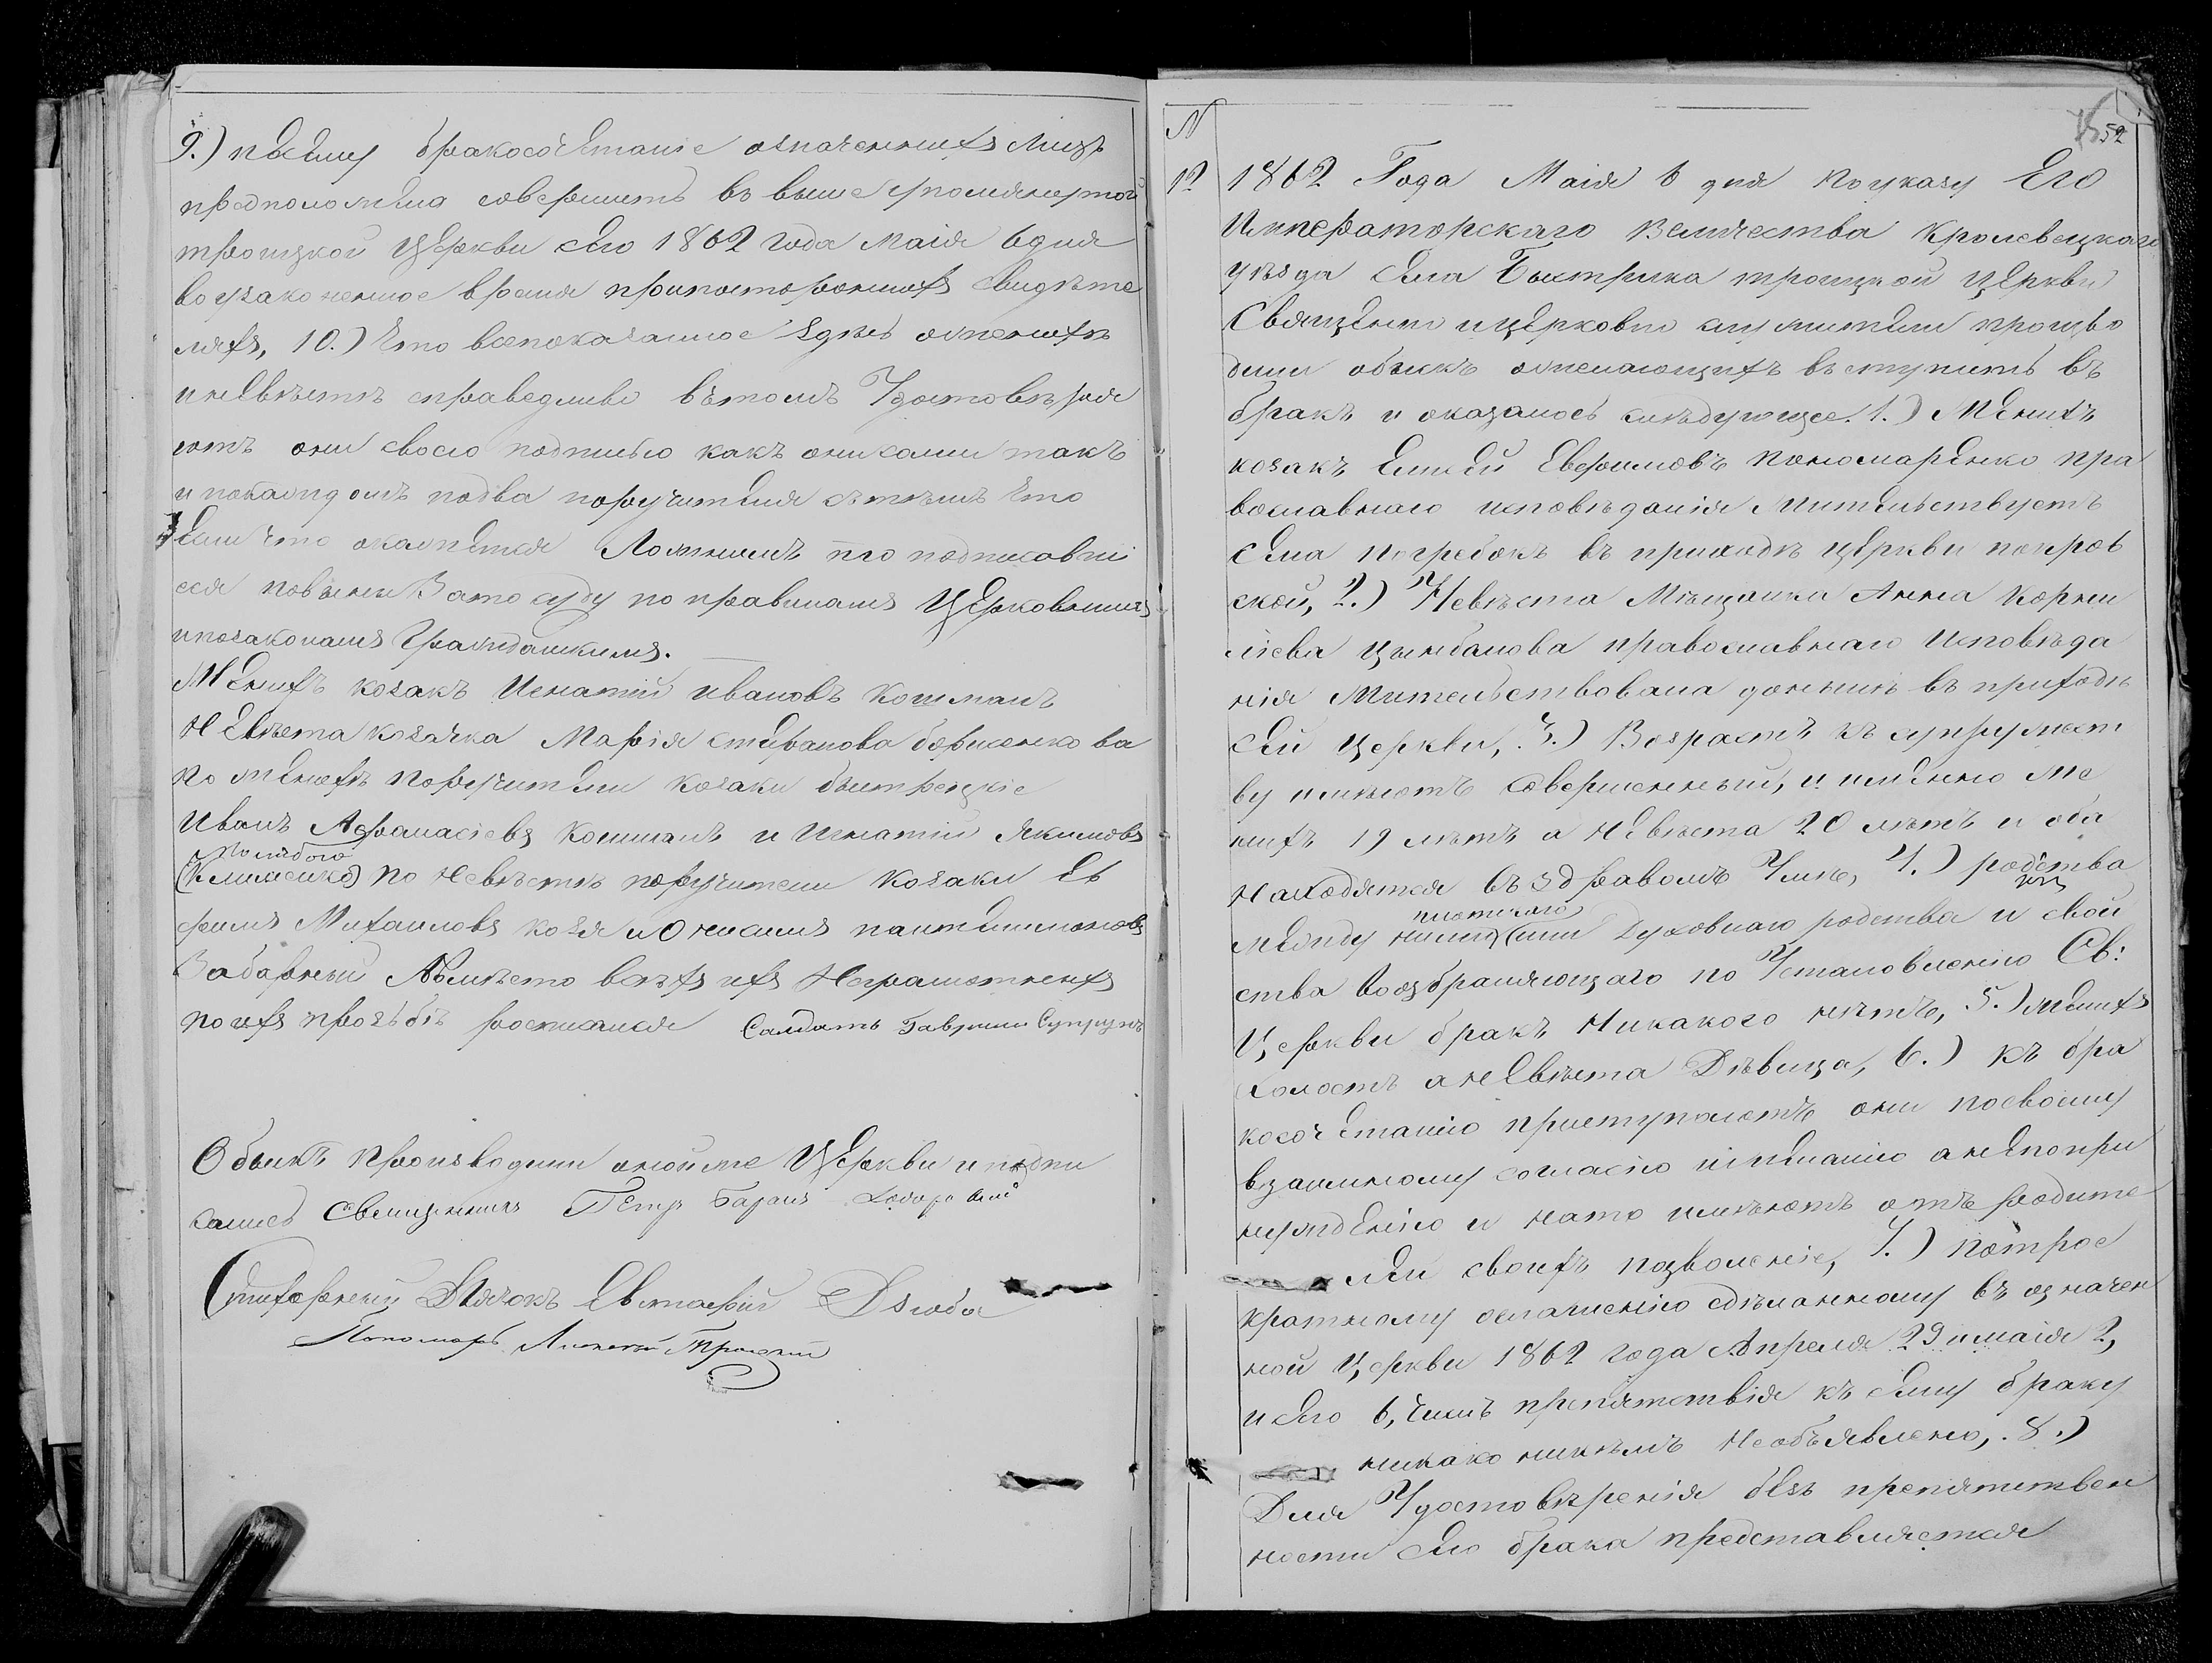 9.) Посему бракосочетаніе означенныхъ лицъ
предположено совершить въ выше упомянутой
троицкой Церкви сего 1862 года маія 6 дня
во узаконенное время припостороннихъ свидѣте
ляхъ, 10.) Что всепоказанное здѣсь о женихѣ
и невѣстѣ справедливо вътомъ Удостовѣря
ютъ они своею подписью какъ они сами такъ
и покаждомъ подва поручителя съ тѣмъ что
Если что окажется Ложнымъ то подписавші
еся повинны Зато суду по правиламъ Церковнымъ
и позаконамъ Гражданскимъ.
Женихъ козакъ Игнатій Ивановъ Кошманъ
Невѣста козачка Марія стефанова борисенко ва
По женихѣ поручители Козаки быстрецкіе
Иванъ Афанасіевъ Кошманъ и Игнатій Якимовъ
(Клименко) по Невѣстѣ поручители Козаки Ев
фимъ Михаиловъ козя и Онисимъ пантелимоновъ
Забарный Авмѣсто всѣхъ ихъ Неграмотныхъ
по ихъ прозьбѣ росписался Салдатъ Гавриил Супрунъ
Обыскъ Производили онойже Церкви и подпи
сались Священникъ Петръ
Дячокъ Евстафій Дзюба
Пономарь Алексей Троицкій
N
52
12 1862 Года Маія 6 дня По указу Его
Императорскаго Величества Кролевецкаго
уѣзда села Быстрика троицкой Церкви
Священно и церковно служители произво
дили обыскъ о желающихъ въступить въ
бракъ и оказалось слѣдующее. 1.) Женихъ
козакъ Елисей Евфимовъ Пономаренко пра
вославнаго исповѣданія Жительствуетъ
села погребокъ въ приходѣ церкви покров
ской, 2.) Невѣста Мѣщанка Анна Корни
ліева Цымбалова православнаго Исповѣда
нія Жительствовала донынѣ въ приходѣ
сей Церкви, 3.) Возрастъ къ супружест
ву имѣютъ Совершенный, и именно же
нихъ 19 лѣтъ а невѣста 20 лѣтъ и оба
Находятся въ здравомъ Умѣ, 4.) родства
между ними (или плотскаго Духовнаго родства и свой
ства Возбраняющаго по Установленію Св:
Церкви бракъ Никакого нѣтъ, 5.) женихъ
Холостъ а невѣста Дѣвица, 6.) къ бра
косочетанію приступаютъ они посвоему
взаимному согласію и желанію а непопри
нужденію и нато имѣютъ отъ родите
лей своихъ позволеніе, 7.) Потрое
кратному оглашенію сдѣланному въ означен
ной Церкви 1862 года Апреля 29 и маія 2,
и сего 6, числъ препятствія къ сему браку
никако никѣмъ Необъявлено, 8.)
Для Удостовѣренія безъ препятствен
ности сего брака представляется